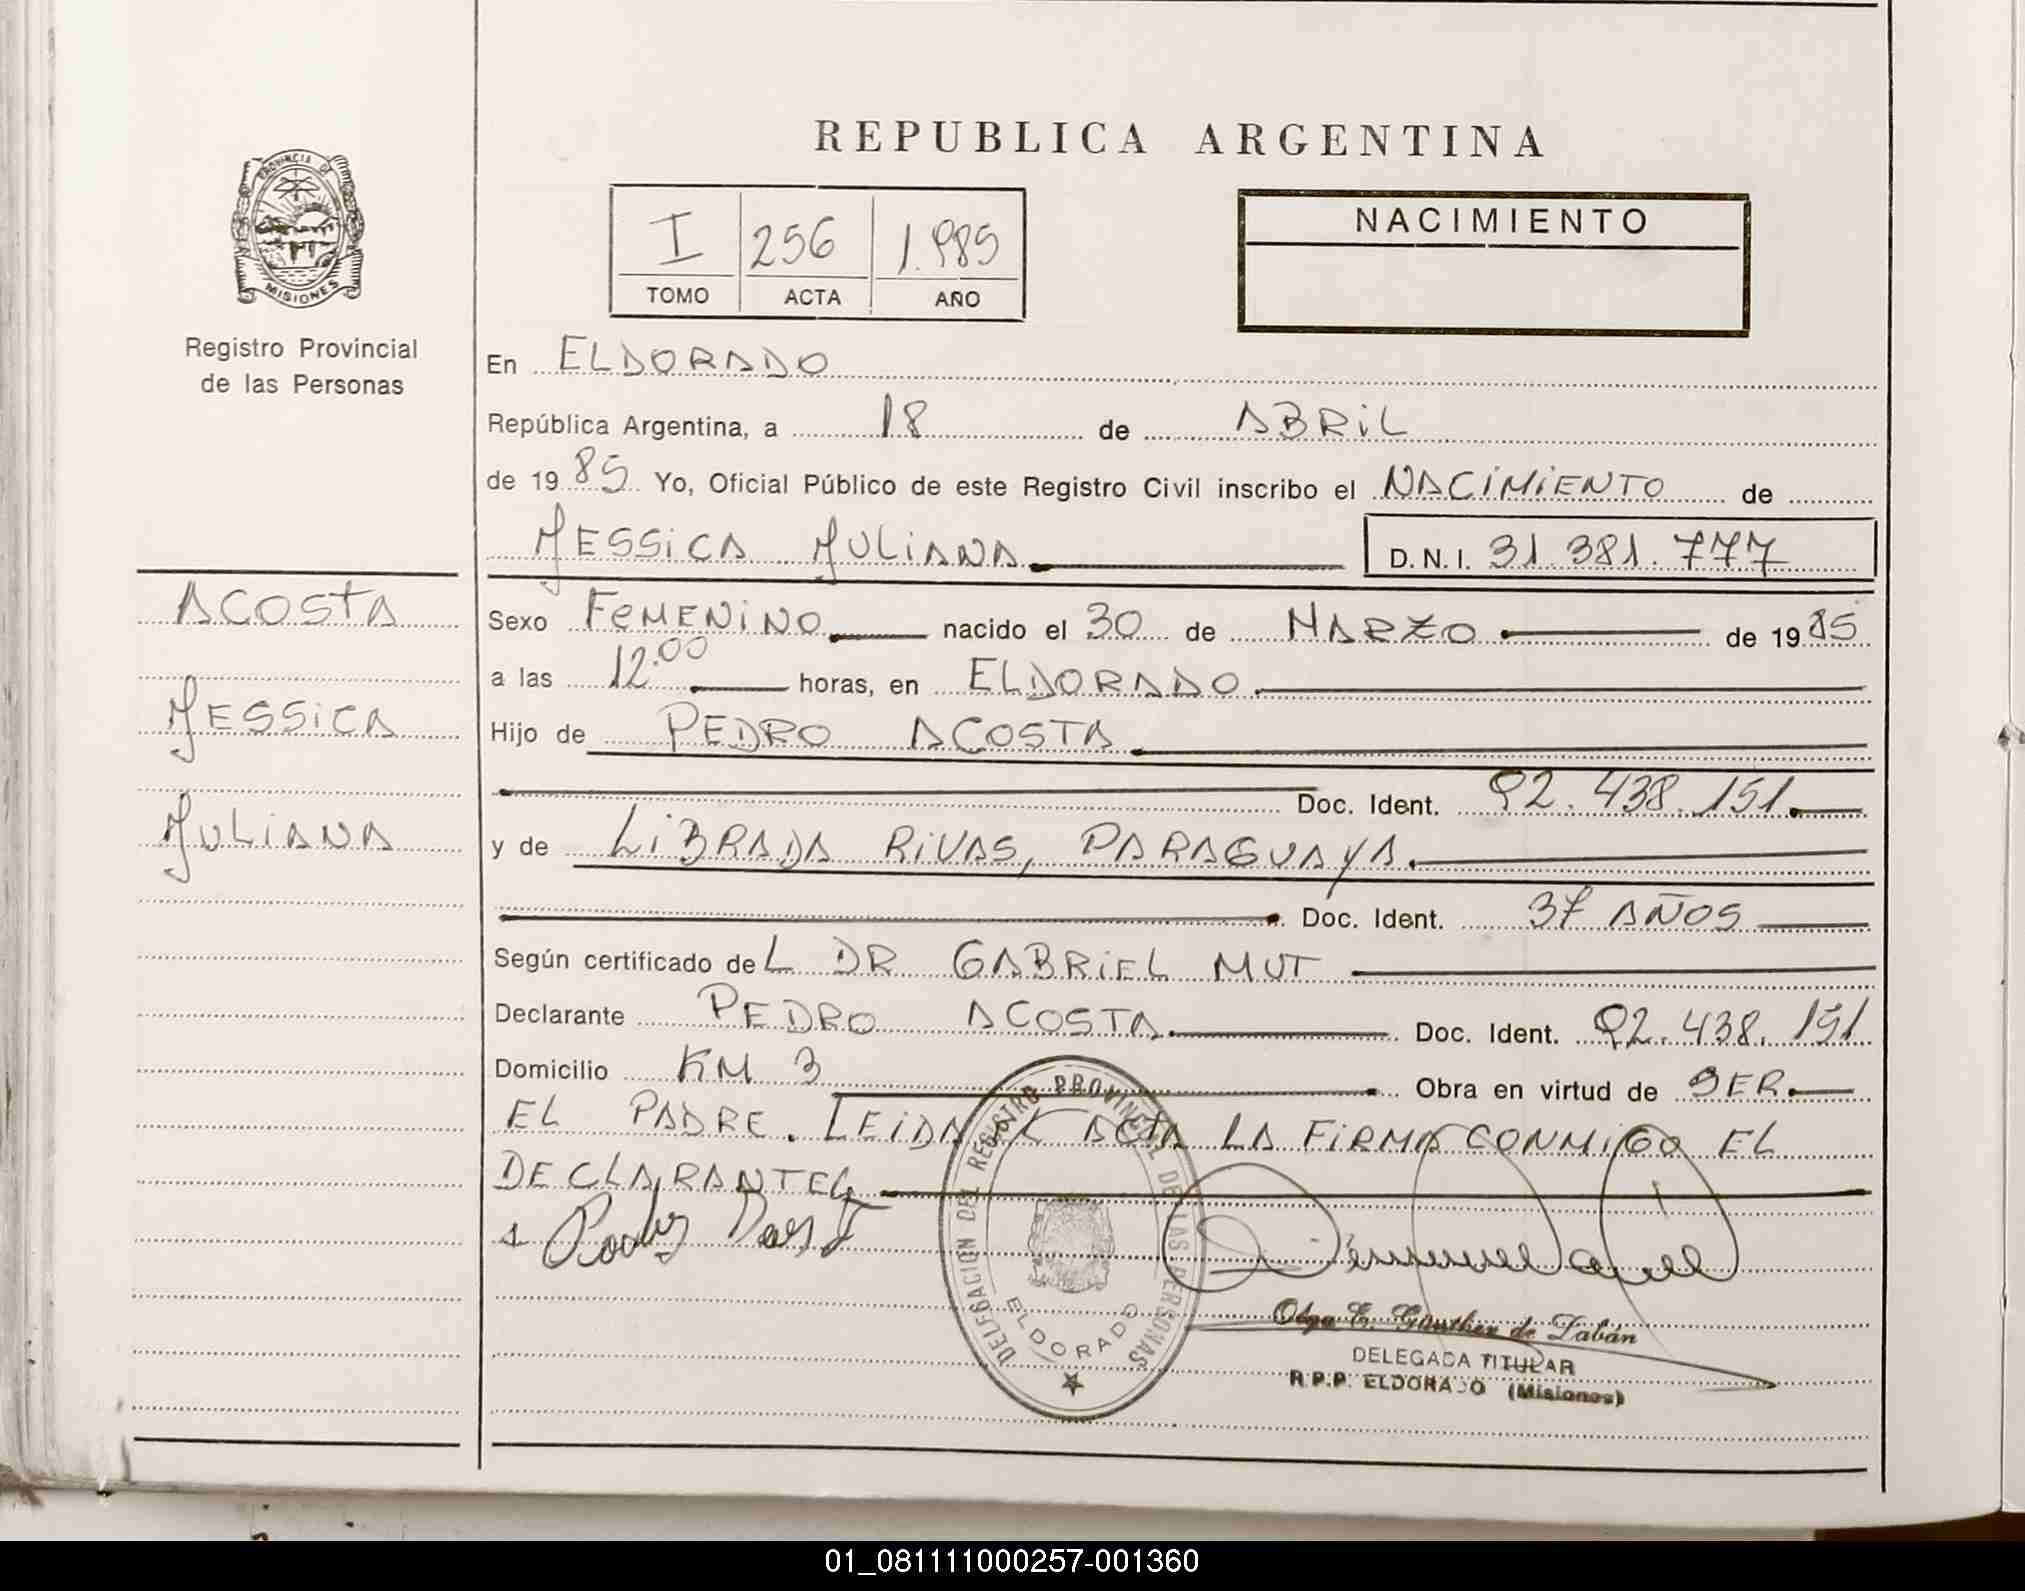 REPUBLICA ARGENTINA
PROVINCIA DE
MISIONES
Registro Provincial
de las Personas
I 256 1.985
TOMO ACTA AÑO
NACIMIENTO
En ELDORADO
República Argentina, a 18 de ABRIL
de 1985 Yo, Oficial Público de este Registro Civil inscribo el NACIMIENTO de
JESSICA JULIANA D.N.I. 31.381.777
ACOSTA
JESSICA
JULIANA
Sexo FEMENINO nacido el 30 de MARZO de 1985
a las 12.00 horas, en ELDORADO
Hijo de PEDRO ACOSTA
Doc. Ident. 92.438.151
y de LIBRADA RIVAS, PARAGUAYA
Doc. Ident. 37 AÑOS
Según certificado deL DR GABRIEL MUT
Declarante PEDRO ACOSTA Doc. Ident. 92.438.151
Domicilio KM 3 Obra en virtud de SER
EL PADRE. LEIDA EL ACTA LA FIRMA CONMIGO EL
DECLARANTE
DELEGACION DEL REGISTRO PROVINCIAL DE LAS PERSONAS
ELDORADO
Olga E. Günther de Zabán
DELEGADA TITULAR
R.P.P. ELDORADO (Misiones)
01_081111000257-001360